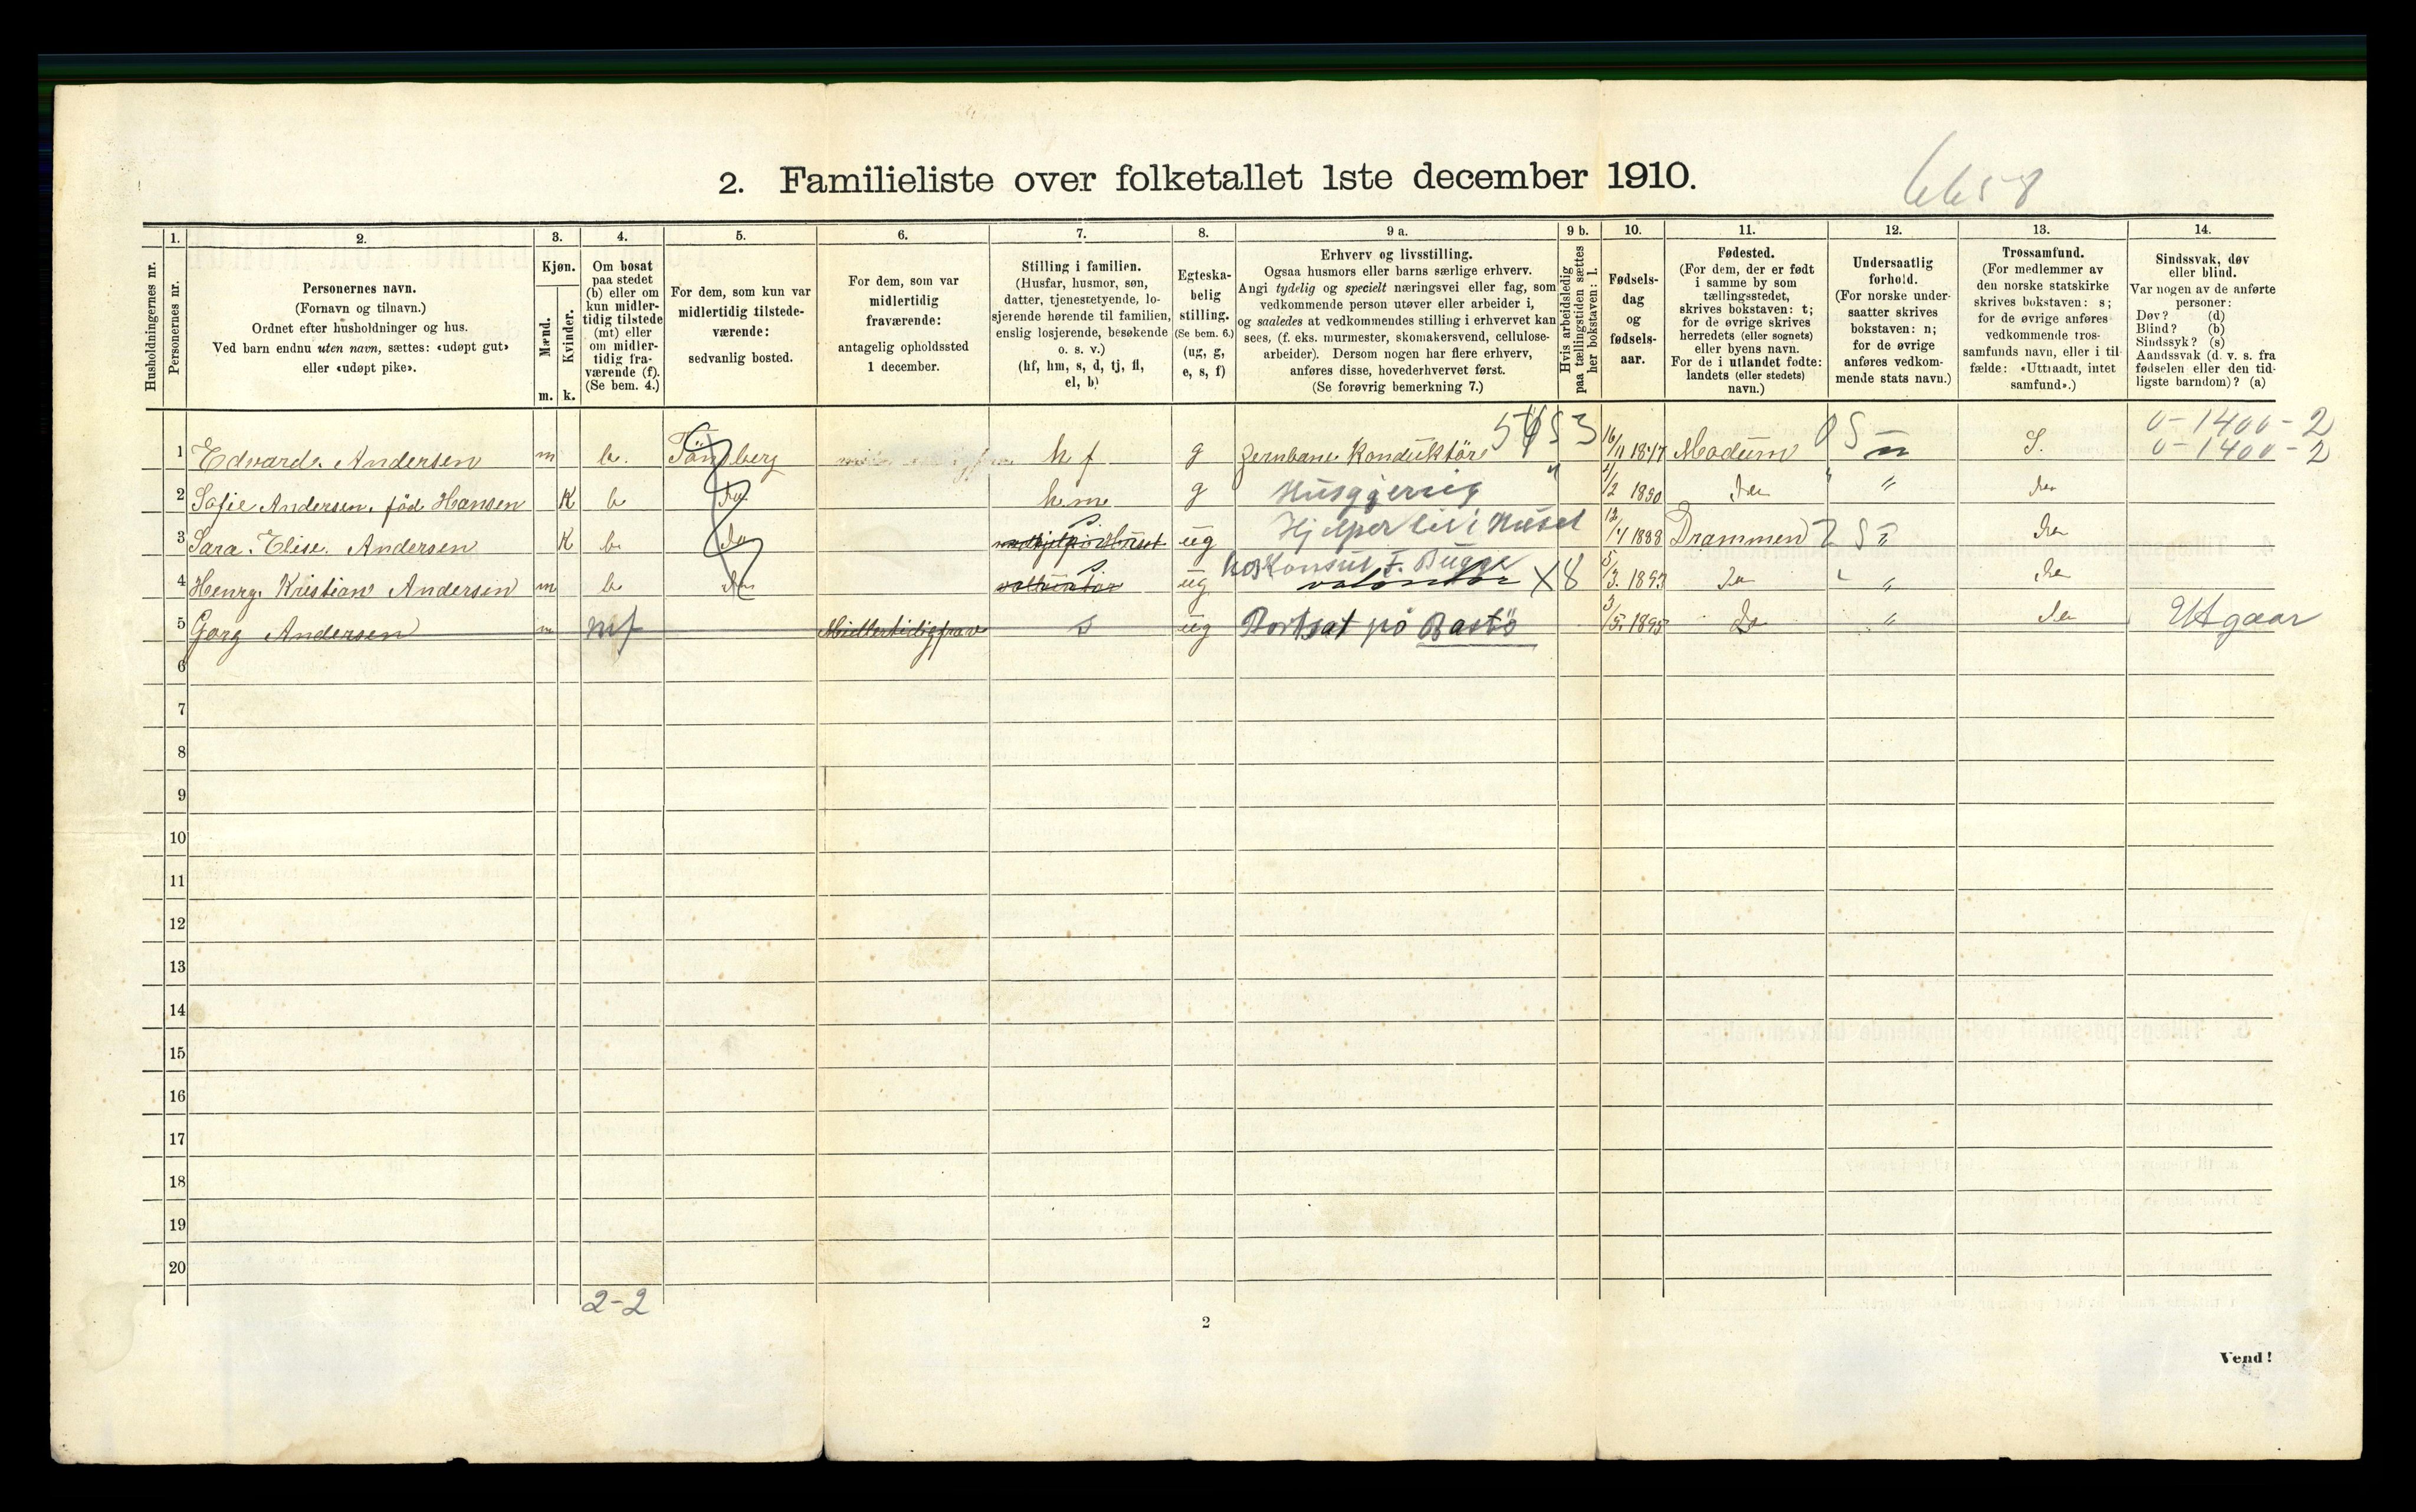 6658
2. Familieliste over folketallet 1ste december 1910.
Husholdningernes nr.
1.
Personernes nr.
2.
Personernes navn.
(Fornavn og tilnavn.)
Ordnet efter husholdninger og hus.
Ved barn endnu uten navn, sættes: «udøpt gut»
eller «udøpt pike».
3.
Kjøn.
Mænd.
Kvinder.
m. k.
4.
Om bosat
paa stedet
(b) eller om
kun midler-
tidig tilstede
(mt) eller
om midler-
tidig fra-
værende (f).
(Se bem. 4.)
5.
For dem, som kun var
midlertidig tilstede-
værende:
sedvanlig bosted.
6.
For dem, som var
midlertidig
fraværende:
antagelig opholdssted
1 december.
7.
Stilling i familien.
(Husfar, husmor, søn,
datter, tjenestetyende, lo-
sjerende hørende til familien,
enslig losjerende, besøkende
o. s. v.)
(hf, hm, s, d, tj, fl,
el, b)
8.
Egteska-
belig
stilling.
(Se bem. 6.)
(ug, g,
e, s, f)
9 a.
Erhverv og livsstilling.
Ogsaa husmors eller barns særlige erhverv.
Angi tydelig og specielt næringsvei eller fag, som
vedkommende person utøver eller arbeider i,
og saaledes at vedkommendes stilling i erhvervet kan
sees, (f. eks. murmester, skomakersvend, cellulose-
arbeider). Dersom nogen har flere erhverv,
anføres disse, hovederhvervet først.
(Se forøvrig bemerkning 7.)
9 b.
Hvis arbeidsledig
paa tællingstiden sættes
her bokstaven: l.
10.
Fødsels-
dag
og
fødsels-
aar.
11.
Fødested.
(For dem, der er født
i samme by som
tællingsstedet,
skrives bokstaven: t;
for de øvrige skrives
herredets (eller sognets)
eller byens navn.
For de i utlandet fødte:
landets (eller stedets)
navn.)
12.
Undersaatlig
forhold.
(For norske under-
saatter skrives
bokstaven: n;
for de øvrige
anføres vedkom-
mende stats navn.)
13.
Trossamfund.
(For medlemmer av
den norske statskirke
skrives bokstaven: s;
for de øvrige anføres
vedkommende tros-
samfunds navn, eller i til-
fælde: «Uttraadt, intet
samfund».)
14.
Sindssvak, døv
eller blind.
Var nogen av de anførte
personer:
Døv? (d)
Blind? (b)
Sindssyk? (s)
Aandssvak (d. v. s. fra
fødselen eller den tid-
ligste barndom)? (a)
0-1400-2
1 Edvard. Andersen m b. Tönsberg hf g Jernbane Konduktör 16/11 1847 Modum n S. 0-1400-2
2 Sofie Andersen. föd. Hansen K b do hm g Husgjerning 1/2 1850 do " do
3 Sara. Elise. Andersen K b. do ug Hjelper til i Huset 12/4 1888 Drammen " do
hos Konsul F. Bugge
4 Henry. Kristian Andersen m b do ug volontör X8 5/3 1893 do " do
5 Georg Andersen m mf Midlertidig frav s ug Bortsat på Bastö 3/5 1895 do " do Utgaar
6
7
8
9
10
11
12
13
14
15
16
17
18
19
20
2-2
2
Vend!